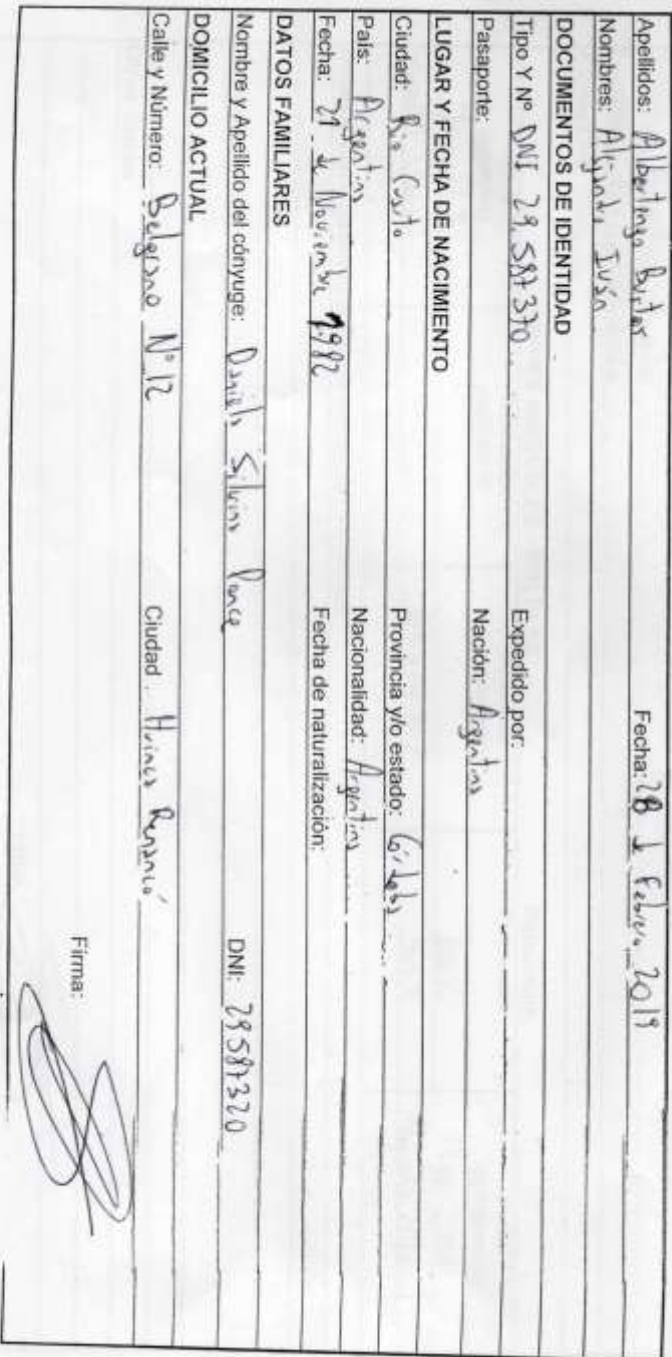 Apellidos: Albertengo Buter Fecha: 28 de Febrero 2019
Nombres: Alejandro Iván
DOCUMENTOS DE IDENTIDAD
Tipo Y Nº DNI 29.587370 Expedido por:
Pasaporte: Nación: Argentina
LUGAR Y FECHA DE NACIMIENTO
Ciudad: Rio Cuarto Provincia y/o estado: Córdoba
País: Argentina Nacionalidad: Argentina
Fecha: 21 de Noviembre 1982 Fecha de naturalización:
DATOS FAMILIARES
Nombre y Apellido del cónyuge: Daniela Silvina Ponce DNI: 29587320
DOMICILIO ACTUAL
Calle y Número: Belgrano Nº 12 Ciudad Huinca Renancó
Firma: